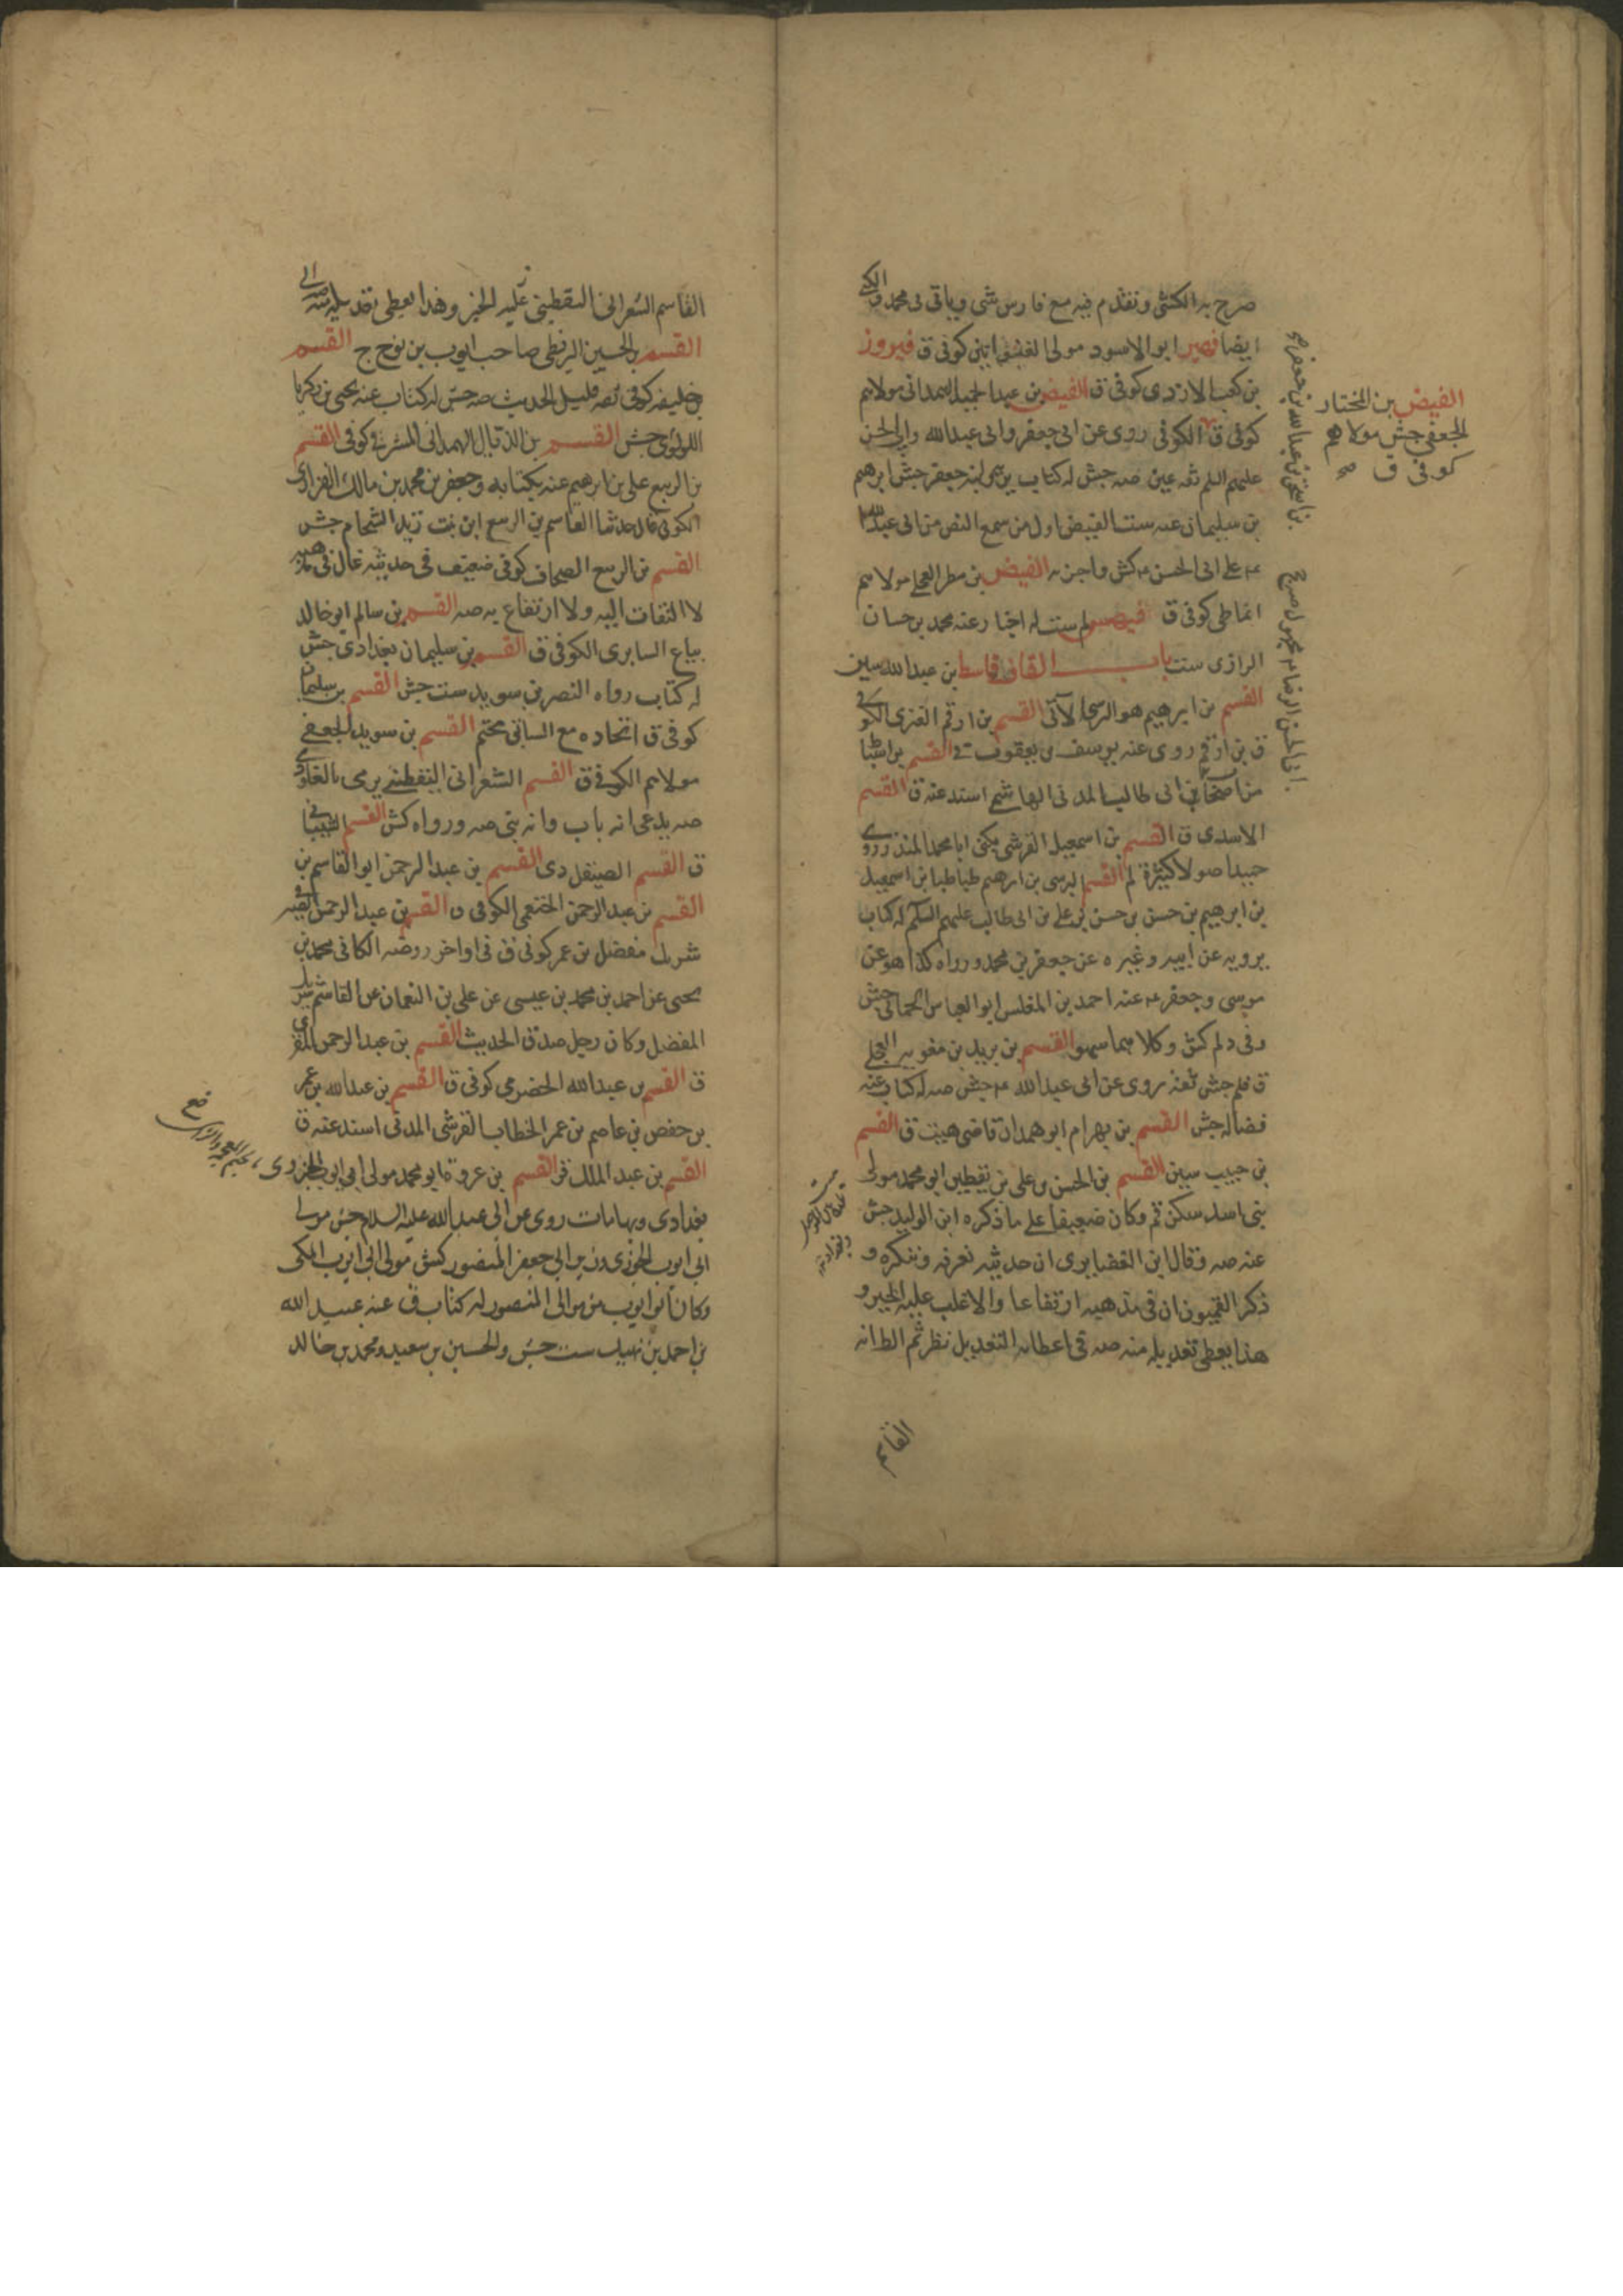 صرح به الكشى وتقدم فيه مع فارس شى وياتى فى محمد
ايضا فهير ابو الاسود مولى كوفى ق فيروز
بن كعب الازدى كوفى ق الفيض بن عبد الحميد الهمدانى مولاهم
كوفى ق الكوفى روى عن ابى جعفر وابى عبدالله وابى الحسن
عليهم السلم ثقه عين صه جش له كتاب يرويه ابنه جعفر جش ابرهيم
بن سليمان عنه ست الفيض اول من سمع النص من ابى عبدالله
عه على ابى الحسن عه كش واجزيه الفيض بن مطر العجلى مولاهم
انماطى كوفى ق لم ست له اخبار عنه محمد بن حسان
الرازى ست باب القاف قاسط بن عبدالله سين
القسم بن ابرهيم هو الرسى الآتى القسم بن ارقم العنزى الكوفى
ق بن ارقم روى عنه يوسف بن يعقوب القسم بن
بن ابى طالب المدنى الهاشمى اسند عنه ق القسم
الاسدى ق القسم بن اسمعيل القرشى يكنى ابا محمد المنذر روى
حميد اصولا كثيرة لم القسم الرسى بن ابرهيم طباطبا بن اسمعيل
بن ابرهيم بن حسن بن حسن بن على بن ابى طالب عليهم السلم له كتاب
يرويه عن ابيه وغيره عن جعفر بن محمد ورواه كذا هو عن
موسى وجعفر عه عنه احمد بن المفلس ابو العباس الحمانى جش
وفى د لم كش وكلاهما سهو القسم بن بريد بن معويه العجلى
ق فلم جش ثقه روى عن ابى عبدالله عه جش صه له كتاب عنه
فضاله جش القسم بن بهرام ابو همدان قاضى هيت ق القسم
بن حبيب سين القسم بن الحسن بن على بن يقطين ابو محمد مولى
بنى اسد سكن قم وكان ضعيفا على ما ذكره ابن الوليد جش
عنه صه وقال ابن الغضايرى ان حديثه نعرفه وننكره و
ذكر القميون ان فى مذهبه ارتفاعا والاغلب عليه الخير و
هذا يعطى تعديله منه صه فى اعطائه التعديل نظر ثم الظ انه
القاسم
الفيض بن المختار
الجعفى جش مولاهم
كوفى ق صح
القاسم الشعرانى اليقطينى عليه الخبر وهذا يعطى تعديله منه
القسم بن الحسين البزنطى صاحب ايوب بن نوح ج القسم
بن خليفه كوفى ثقه قليل الحديث صه جش له كتاب عنه يحيى بن زكريا
اللؤلؤى جش القسم بن الذيال الهمدانى المشرقى كوفى القسم
بن الربيع على بن ابرهيم عنه بكتابه وجعفر بن محمد بن مالك الفزارى
الكوفى قال حدثنا القاسم بن الربيع ابن بنت زيد الشحام جش
القسم بن الربيع الصحاف كوفى ضعيف فى حديثه غال فى مذهبه
لا التفات اليه ولا ارتفاع به صه القسم بن سالم ابو خالد
بياع السابرى الكوفى ق القسم بن سليمان بغدادى جش
له كتاب رواه النضر بن سويد ست جش القسم بن سليمان
كوفى ق اتحاده مع السابق محتم القسم بن سويد الجعفى
مولاهم الكوفى ق القسم الشعرانى اليقطينى يرمى بالغلو دى
صه يدعى انه باب وانه نبى صه ورواه كش القسم الشيبانى
ق القسم الصيقل دى القسم بن عبد الرحمن ابو القاسم بن
القسم بن عبد الرحمن الخثعمى الكوفى ق القسم بن عبد الرحمن الصيرفى
شريك مفضل بن عمر كوفى ق فى اواخر روضه الكافى محمد بن
يحيى عن احمد بن محمد بن عيسى عن على بن النعمان عن القاسم شريك
المفضل وكان رجل صدق الحديث القسم بن عبد الرحمن المقرى
ق القسم بن عبدالله الحضرمى كوفى ق القسم بن عبدالله بن عمر
بن حفص بن عاصم بن عمر الخطاب القرشى المدنى اسند عنه ق
القسم بن عبد الملك قر القسم بن عروة ابو محمد مولى ابى ايوب الخوزى
بغدادى وبها مات روى عن ابى عبدالله عليه السلام جش مولى
ابى ايوب الخوزى وزير ابى جعفر المنصور كش مولى ابى ايوب المكى
وكان ابو ايوب من موالى المنصور له كتاب ق عنه عبيد الله
بن احمد بن نهيك ست جش والحسين بن سعيد ومحمد بن خالد